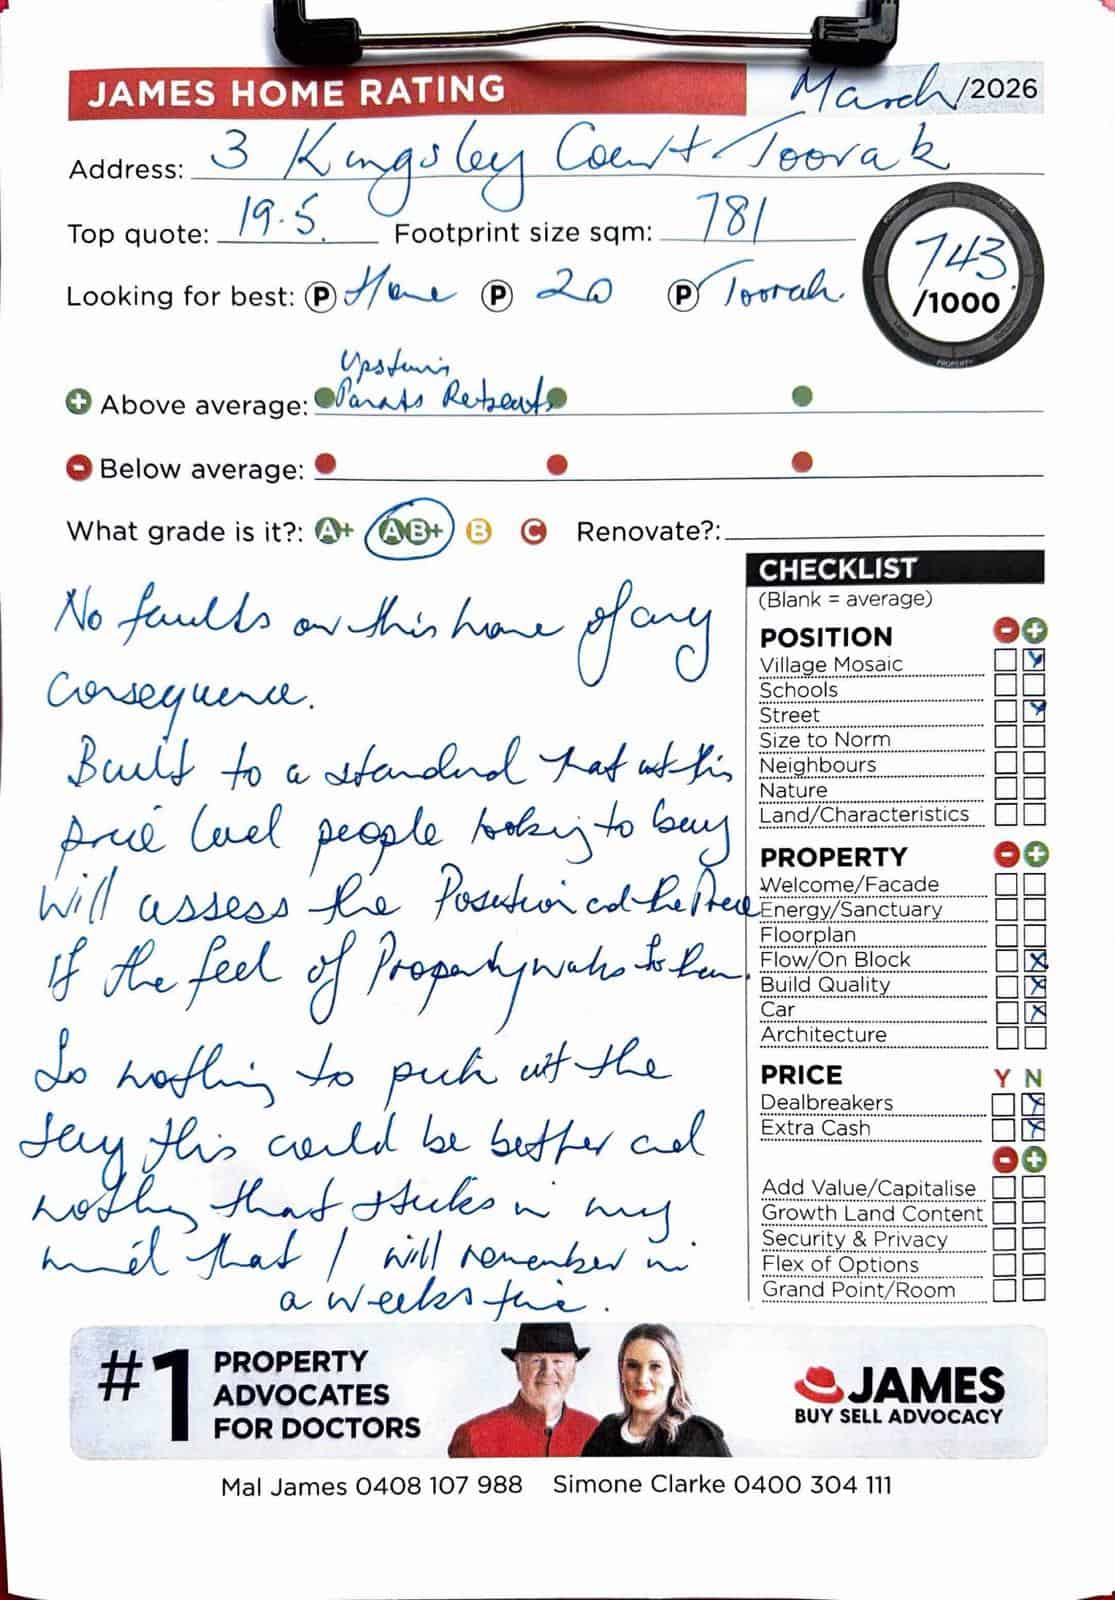 JAMES HOME RATING March/2026
Address: 3 Kingsley Court Toorak
Top quote: 19.5 Footprint size sqm: 781
743 /1000
Looking for best: P Home P 20 P Toorak.
Upstairs
+ Above average: Parents Retreats
- Below average:
What grade is it?: A+ AB+ B C Renovate?:
No faults on this home of any
consequence.
Built to a standard that at this
price level people looking to buy
will assess the Position and the Price
If the feel of Property works to them.
So nothing to pick at the
say this could be better and
nothing that sticks in my
mind that I will remember in
a weeks time.
CHECKLIST
(Blank = average)
POSITION - +
Village Mosaic
Schools
Street
Size to Norm
Neighbours
Nature
Land/Characteristics
PROPERTY - +
Welcome/Facade
Energy/Sanctuary
Floorplan
Flow/On Block
Build Quality
Car
Architecture
PRICE Y N
Dealbreakers
Extra Cash
- +
Add Value/Capitalise
Growth Land Content
Security & Privacy
Flex of Options
Grand Point/Room
#1 PROPERTY
ADVOCATES
FOR DOCTORS
JAMES
BUY SELL ADVOCACY
Mal James 0408 107 988 Simone Clarke 0400 304 111